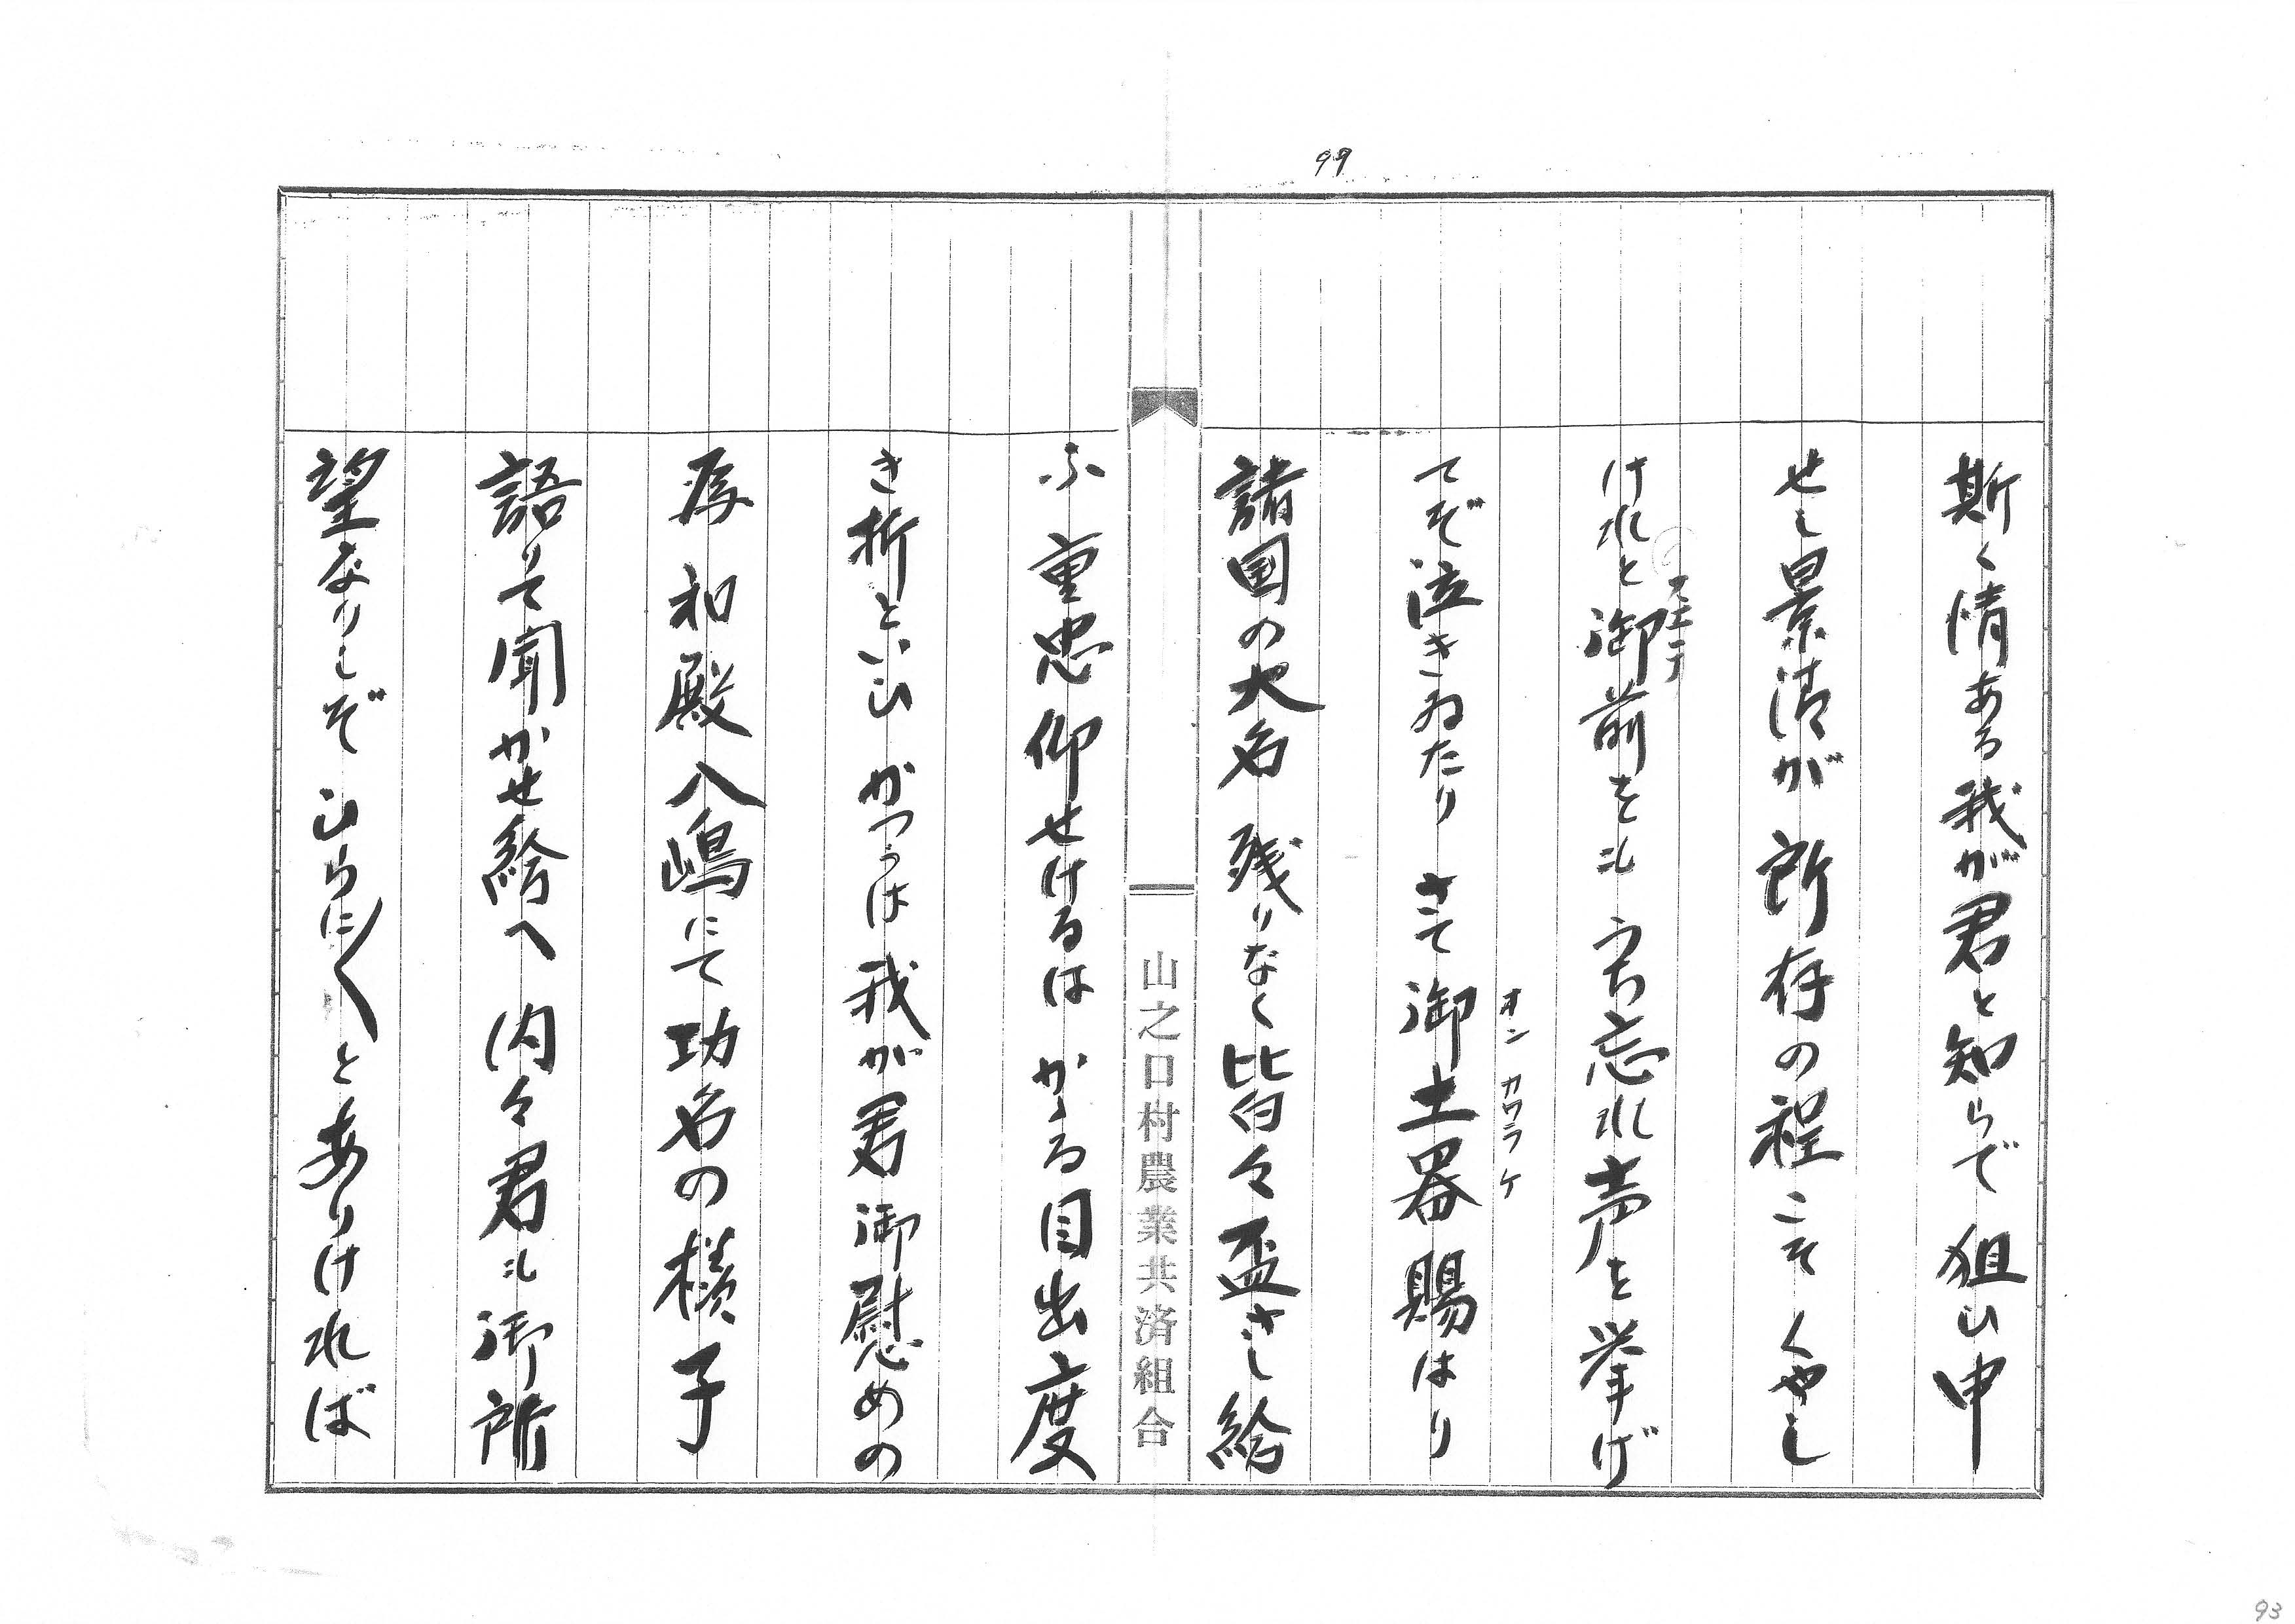 99
斯く情ある我が君と知らで狙ひ申
せし景清が所存の程こそくやし
けれと御前をもうち忘れ声を挙げ
てぞ泣きゐたりさて御土器賜はり
オンカワラケ
諸国の大名残りなく皆々盃さし給
山之口村農業共済組合
ふ重忠仰せけるはかゝる目出度
き折といひかつうは我が君御慰めの
為和殿八嶋にて功名の様子
語りて聞かせ給へ内々君も御所
望なりしぞひらに〳〵とありければ
93